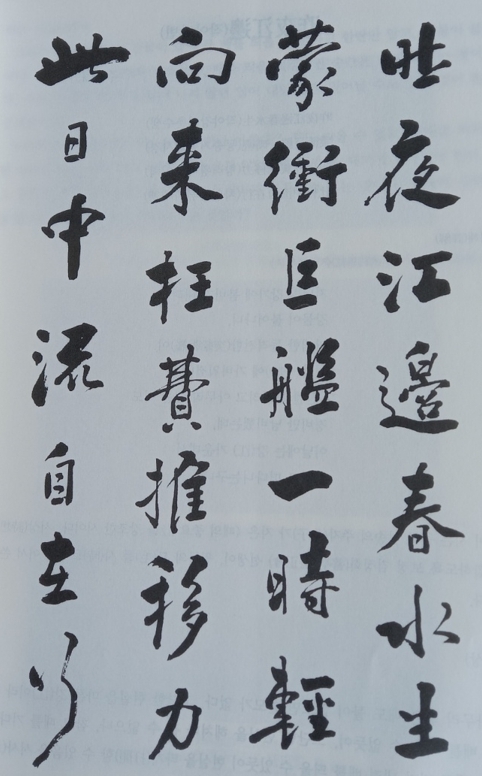 昨夜江邊春水生
蒙衝巨艦一時輕
向來枉費推移力
此日中流自在行